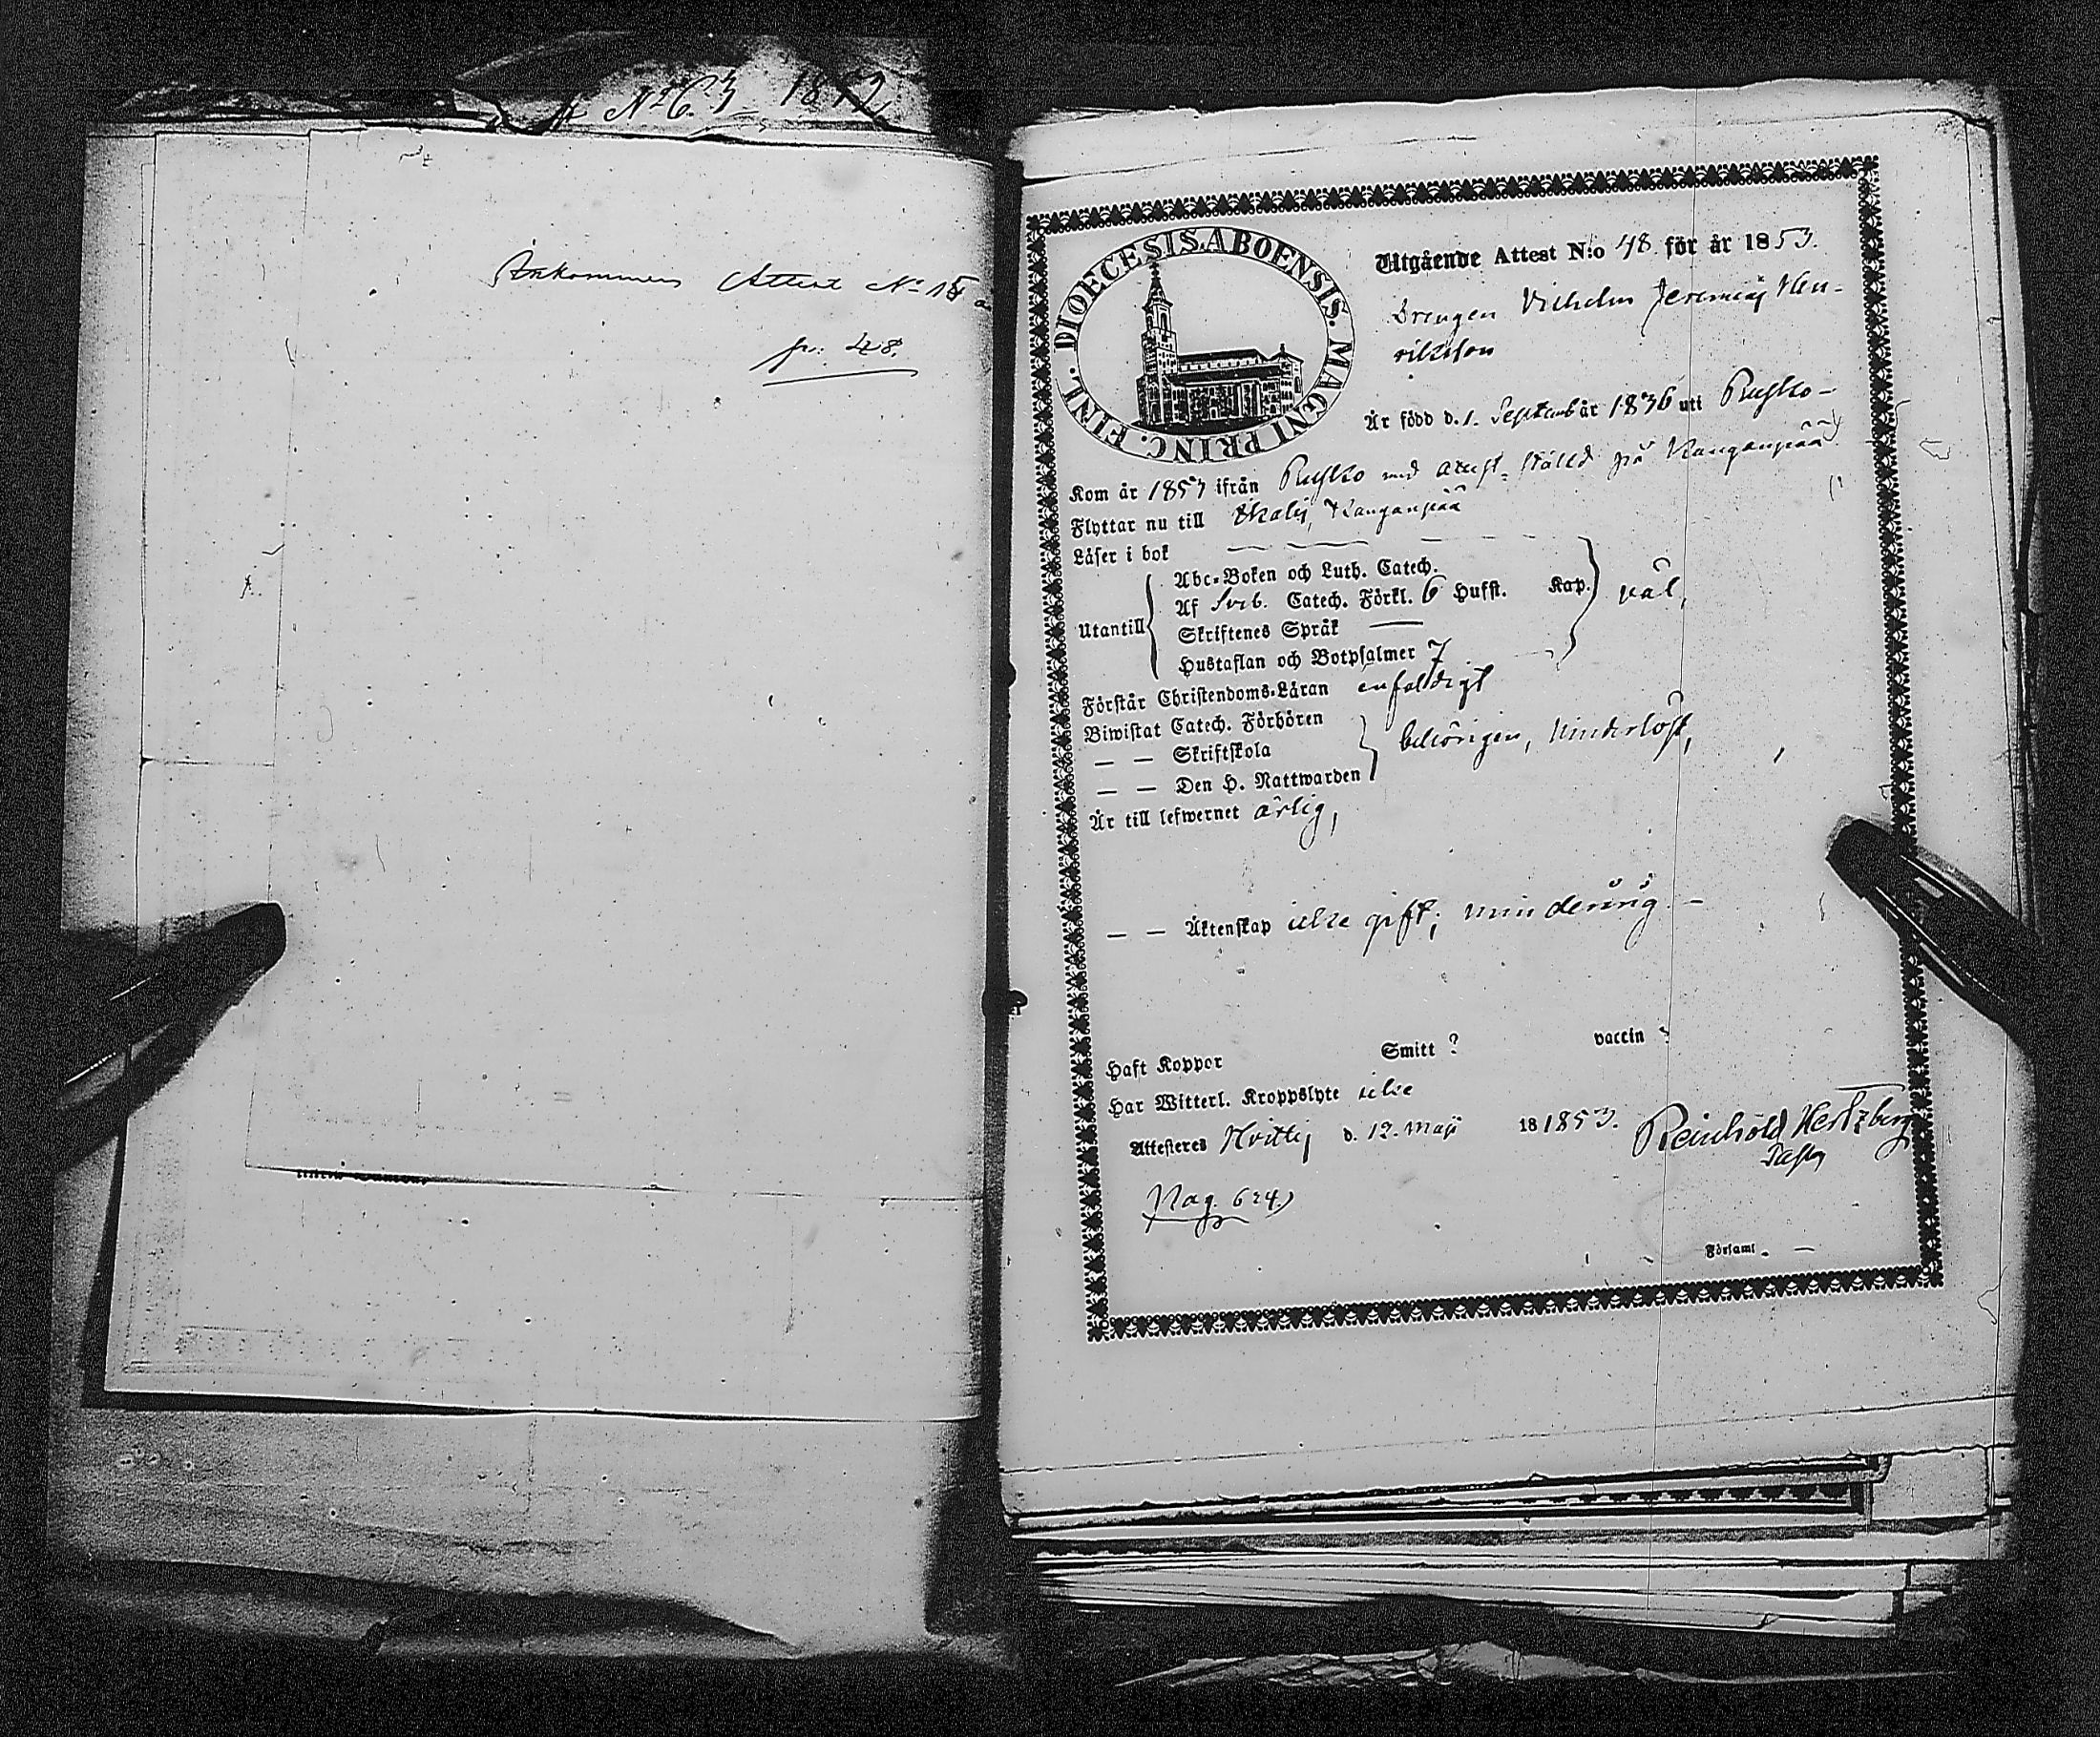 No 63 1852
Ankommen Attest No 15 a
pr: 48.
DIOECESIS. ABOENSIS. MAGNI PRINC. FINL.
Utgående Attest N:o 48 för år 1853.
Drengen Vilhelm Jeremias Hen-
riksson
Är född d. 1. Septemb år 1836 uti Rusko
Kom år 1853 ifrån Rusko med attest ställd på Kanganpää
Flyttar nu till Ikalis, Kanganpää
Läser i bok
Utantill
Abc-Boken och Luth. Catech.
Af Sveb. Catech. Förkl. 6 Hufst. Kap. väl,
Skriftenes Språk —
Hustaflan och Botpsalmer 7
Förstår Christendoms-Läran enfaldigt
Biwistat Catech. Förhören
— — Skriftskola behörigen, hinderlöst,
— — Den H. Nattwarden
Är till lefwernet ärlig,
— — Äktenskap icke gift; minderårig. –
Haft Koppor Smitt ? vaccin ?
Har Witterl. Kroppslyte icke
Attesteres Hvittis d. 12. Maji 18 1853. Reinhold Hertzberg
Pag. 624)
Församl. —